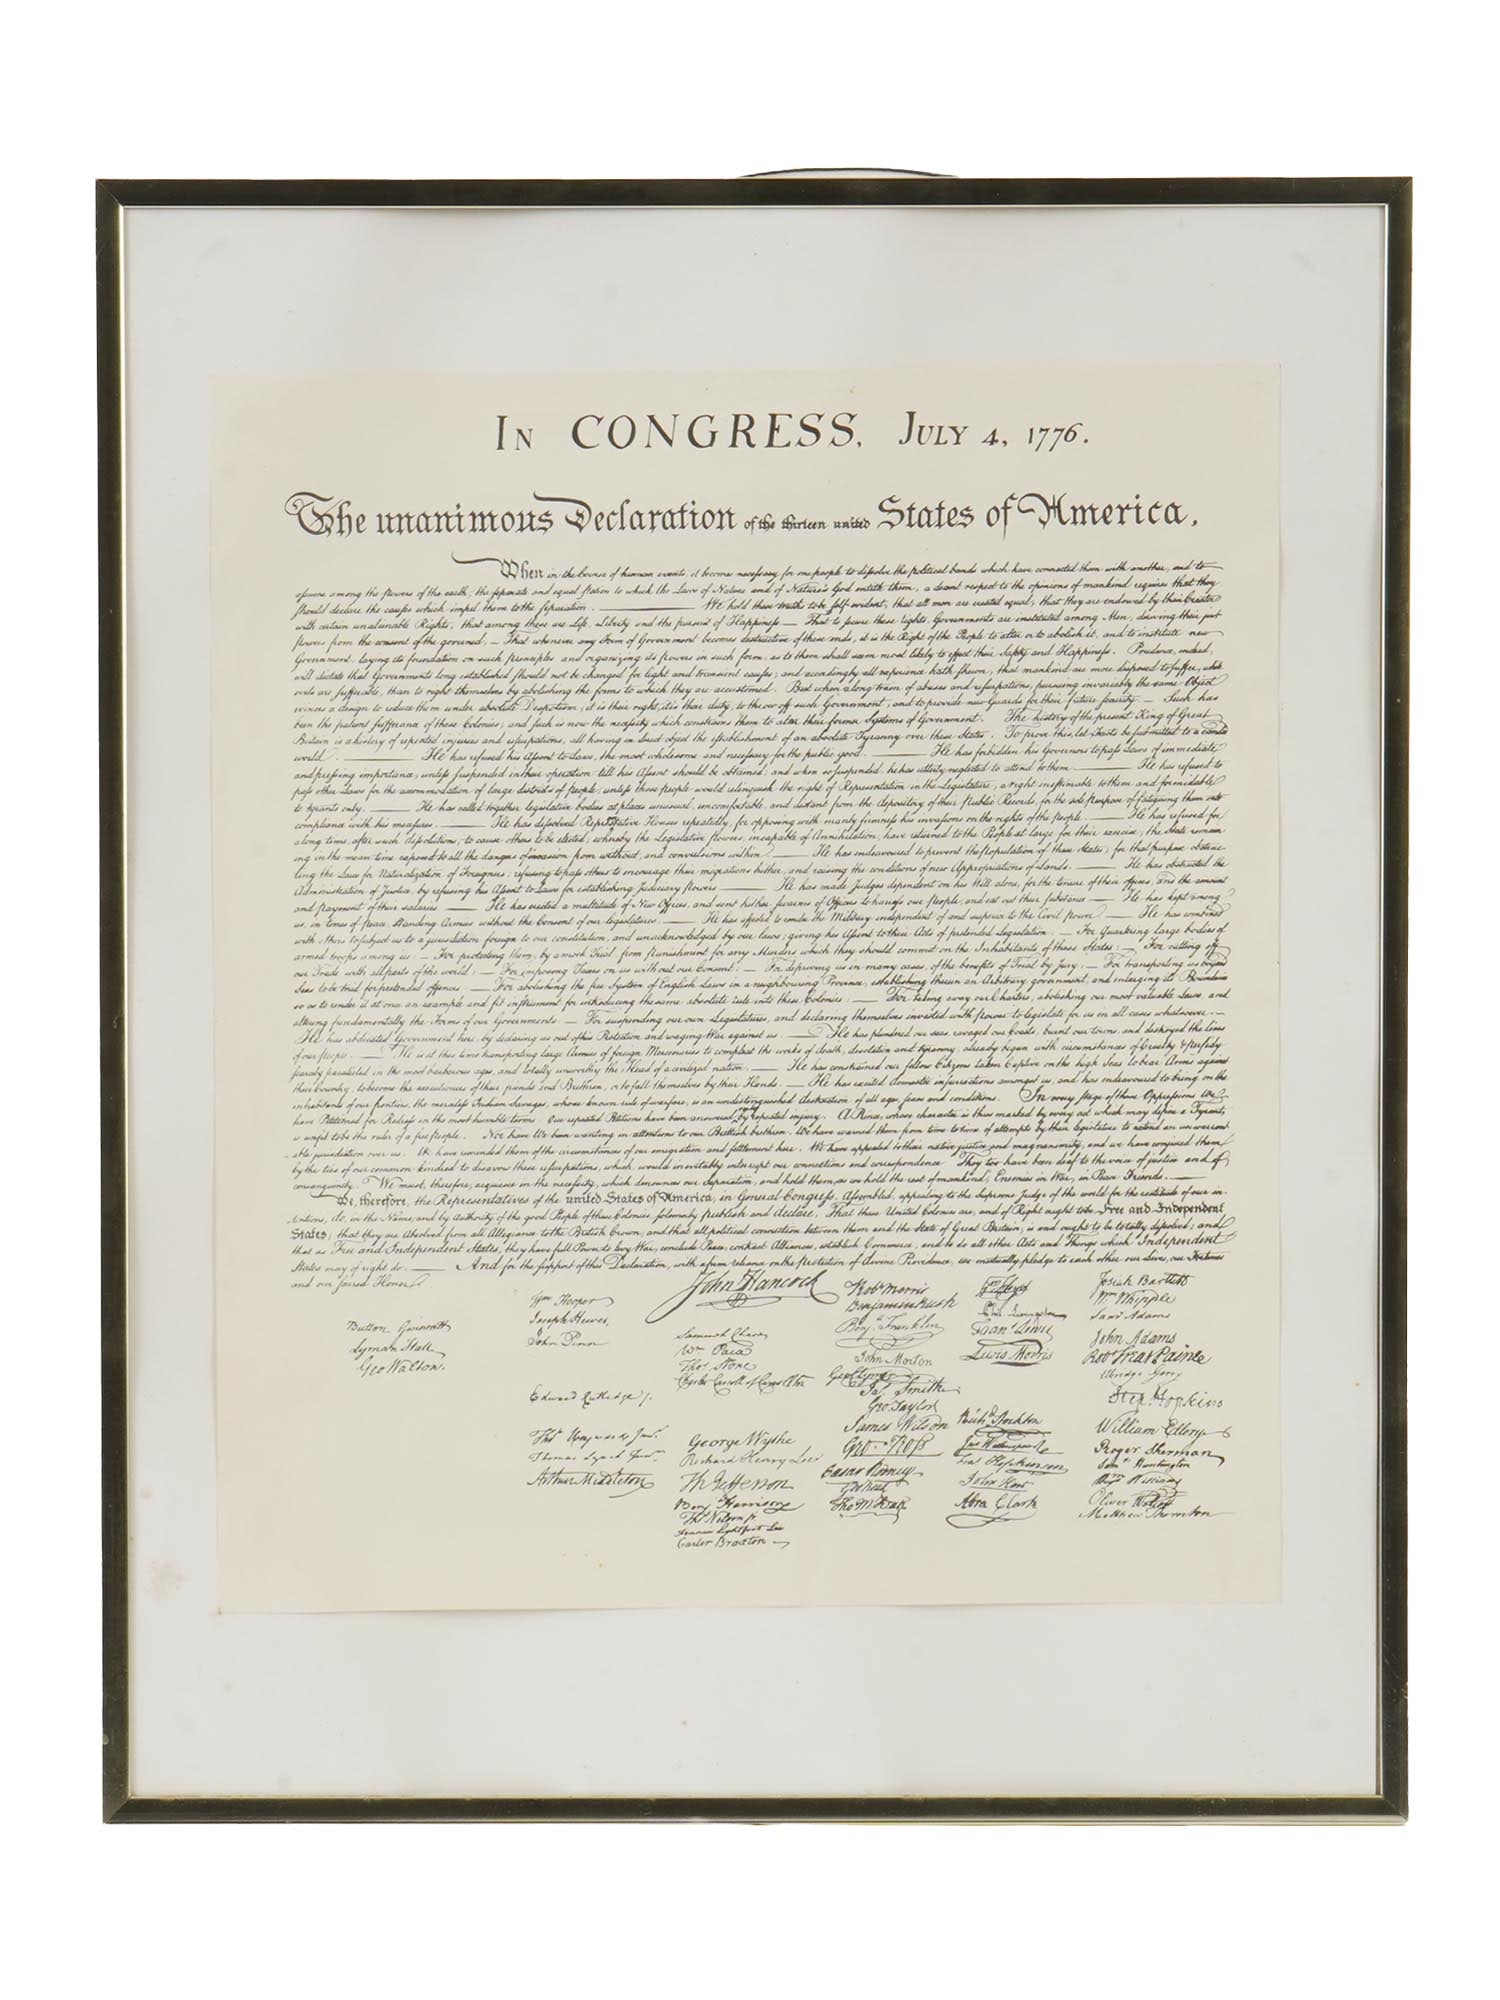 IN CONGRESS, JULY 4, 1776.
The unanimous Declaration of the thirteen united States of America,
When in the Course of human events, it becomes necessary for one people to dissolve the political bands which have connected them with another, and to
assume among the powers of the earth, the separate and equal station to which the Laws of Nature and of Nature's God entitle them, a decent respect to the opinions of mankind requires that they
should declare the causes which impel them to the separation. — We hold these truths to be self-evident, that all men are created equal, that they are endowed by their Creator
with certain unalienable Rights, that among these are Life, Liberty and the pursuit of Happiness — That to secure these rights, Governments are instituted among Men, deriving their just
powers from the consent of the governed, — That whenever any Form of Government becomes destructive of these ends, it is the Right of the People to alter or to abolish it, and to institute new
Government, laying its foundation on such principles and organizing its powers in such form, as to them shall seem most likely to effect their Safety and Happiness. Prudence, indeed,
will dictate that Governments long established should not be changed for light and transient causes; and accordingly all experience hath shewn, that mankind are more disposed to suffer, while
evils are sufferable, than to right themselves by abolishing the forms to which they are accustomed. But when a long train of abuses and usurpations, pursuing invariably the same Object
evinces a design to reduce them under absolute Despotism, it is their right, it is their duty, to throw off such Government, and to provide new Guards for their future security. — Such has
been the patient sufferance of these Colonies; and such is now the necessity which constrains them to alter their former Systems of Government. The history of the present King of Great
Britain is a history of repeated injuries and usurpations, all having in direct object the establishment of an absolute Tyranny over these States. To prove this, let Facts be submitted to a candid
world. — He has refused his Assent to Laws, the most wholesome and necessary for the public good. — He has forbidden his Governors to pass Laws of immediate
and pressing importance, unless suspended in their operation till his Assent should be obtained; and when so suspended, he has utterly neglected to attend to them. — He has refused to
pass other Laws for the accommodation of large districts of people, unless those people would relinquish the right of Representation in the Legislature, a right inestimable to them and formidable
to tyrants only. — He has called together legislative bodies at places unusual, uncomfortable, and distant from the depository of their Public Records, for the sole purpose of fatiguing them into
compliance with his measures. — He has dissolved Representative Houses repeatedly, for opposing with manly firmness his invasions on the rights of the people. — He has refused for
a long time, after such dissolutions, to cause others to be elected; whereby the Legislative powers, incapable of Annihilation, have returned to the People at large for their exercise; the State remain
ing in the mean time exposed to all the dangers of invasion from without, and convulsions within. — He has endeavoured to prevent the population of these States; for that purpose obstruc-
ting the Laws for Naturalization of Foreigners; refusing to pass others to encourage their migrations hither, and raising the conditions of new Appropriations of Lands. — He has obstructed the
Administration of Justice, by refusing his Assent to Laws for establishing Judiciary powers — He has made Judges dependent on his Will alone, for the tenure of their offices, and the amount
and payment of their salaries — He has erected a multitude of New Offices, and sent hither swarms of Officers to harrass our people, and eat out their substance — He has kept among
us, in times of peace, Standing Armies without the Consent of our legislatures. — He has affected to render the Military independent of and superior to the Civil power. — He has combined
with others to subject us to a jurisdiction foreign to our constitution, and unacknowledged by our laws; giving his Assent to their Acts of pretended Legislation: — For Quartering large bodies of
armed troops among us: — For protecting them, by a mock Trial, from punishment for any Murders which they should commit on the Inhabitants of these States: — For cutting off
our Trade with all parts of the world: — For imposing Taxes on us without our Consent: — For depriving us in many cases, of the benefits of Trial by Jury: — For transporting us beyond
Seas to be tried for pretended offences — For abolishing the free System of English Laws in a neighbouring Province, establishing therein an Arbitrary government, and enlarging its Boundaries
so as to render it at once an example and fit instrument for introducing the same absolute rule into these Colonies: — For taking away our Charters, abolishing our most valuable Laws, and
altering fundamentally the Forms of our Governments — For suspending our own Legislatures, and declaring themselves invested with power to legislate for us in all cases whatsoever. —
He has abdicated Government here, by declaring us out of his Protection and waging War against us. — He has plundered our seas, ravaged our Coasts, burnt our towns, and destroyed the lives
of our people. — He is at this time transporting large Armies of foreign Mercenaries to compleat the works of death, desolation and tyranny, already begun with circumstances of Cruelty & perfidy
scarcely paralleled in the most barbarous ages, and totally unworthy the Head of a civilized nation. — He has constrained our fellow Citizens taken Captive on the high Seas to bear Arms against
their Country, to become the executioners of their friends and Brethren, or to fall themselves by their Hands. — He has excited domestic insurrections amongst us, and has endeavoured to bring on the
inhabitants of our frontiers, the merciless Indian Savages, whose known rule of warfare, is an undistinguished destruction of all ages, sexes and conditions. In every stage of these Oppressions We
have Petitioned for Redress in the most humble terms: Our repeated Petitions have been answered only by repeated injury. A Prince, whose character is thus marked by every act which may define a Tyrant,
is unfit to be the ruler of a free people. Nor have We been wanting in attentions to our Brittish brethren. We have warned them from time to time of attempts by their legislature to extend an unwarrant
able jurisdiction over us. We have reminded them of the circumstances of our emigration and settlement here. We have appealed to their native justice and magnanimity, and we have conjured them
by the ties of our common kindred to disavow these usurpations, which, would inevitably interrupt our connections and correspondence They too have been deaf to the voice of justice and of
consanguinity. We must, therefore, acquiesce in the necessity, which denounces our Separation, and hold them, as we hold the rest of mankind, Enemies in War, in Peace Friends. —
We, therefore, the Representatives of the united States of America, in General Congress, Assembled, appealing to the Supreme Judge of the world for the rectitude of our in-
tentions, do, in the Name, and by Authority of the good People of these Colonies, solemnly publish and declare, That these United Colonies are, and of Right ought to be Free and Independent
States; that they are Absolved from all Allegiance to the British Crown, and that all political connection between them and the State of Great Britain, is and ought to be totally dissolved; and
that as Free and Independent States, they have full Power to levy War, conclude Peace, contract Alliances, establish Commerce, and to do all other Acts and Things which Independent
States may of right do. — And for the support of this Declaration, with a firm reliance on the protection of divine Providence, we mutually pledge to each other our Lives, our Fortunes
and our sacred Honor.
Button Gwinnett
Lyman Hall
Geo Walton.
Wm Hooper
Joseph Hewes,
John Penn
Edward Rutledge /.
Thos Heyward Junr.
Thomas Lynch Junr.
Arthur Middleton
John Hancock
Samuel Chase
Wm Paca
Thos Stone
Charles Carroll of Carrollton
George Wythe
Richard Henry Lee
Th Jefferson
Benj Harrison
Thos Nelson jr.
Francis Lightfoot Lee
Carter Braxton
Robt Morris
Benjamin Rush
Benja Franklin
John Morton
Geo Clymer
Jas Smith
Geo Taylor
James Wilson
Geo. Ross
Caesar Rodney
Geo Read
Tho M:Kean
Wm Floyd
Phil. Livingston
Frans Lewis
Lewis Morris
Richd Stockton
Jno Witherspoon
Fras Hopkinson
John Hart
Abra Clark
Josiah Bartlett
Wm Whipple
Saml Adams
John Adams
Robt Treat Paine
Elbridge Gerry
Step Hopkins
William Ellery
Roger Sherman
Saml Huntington
Wm Williams
Oliver Wolcott
Matthew Thornton